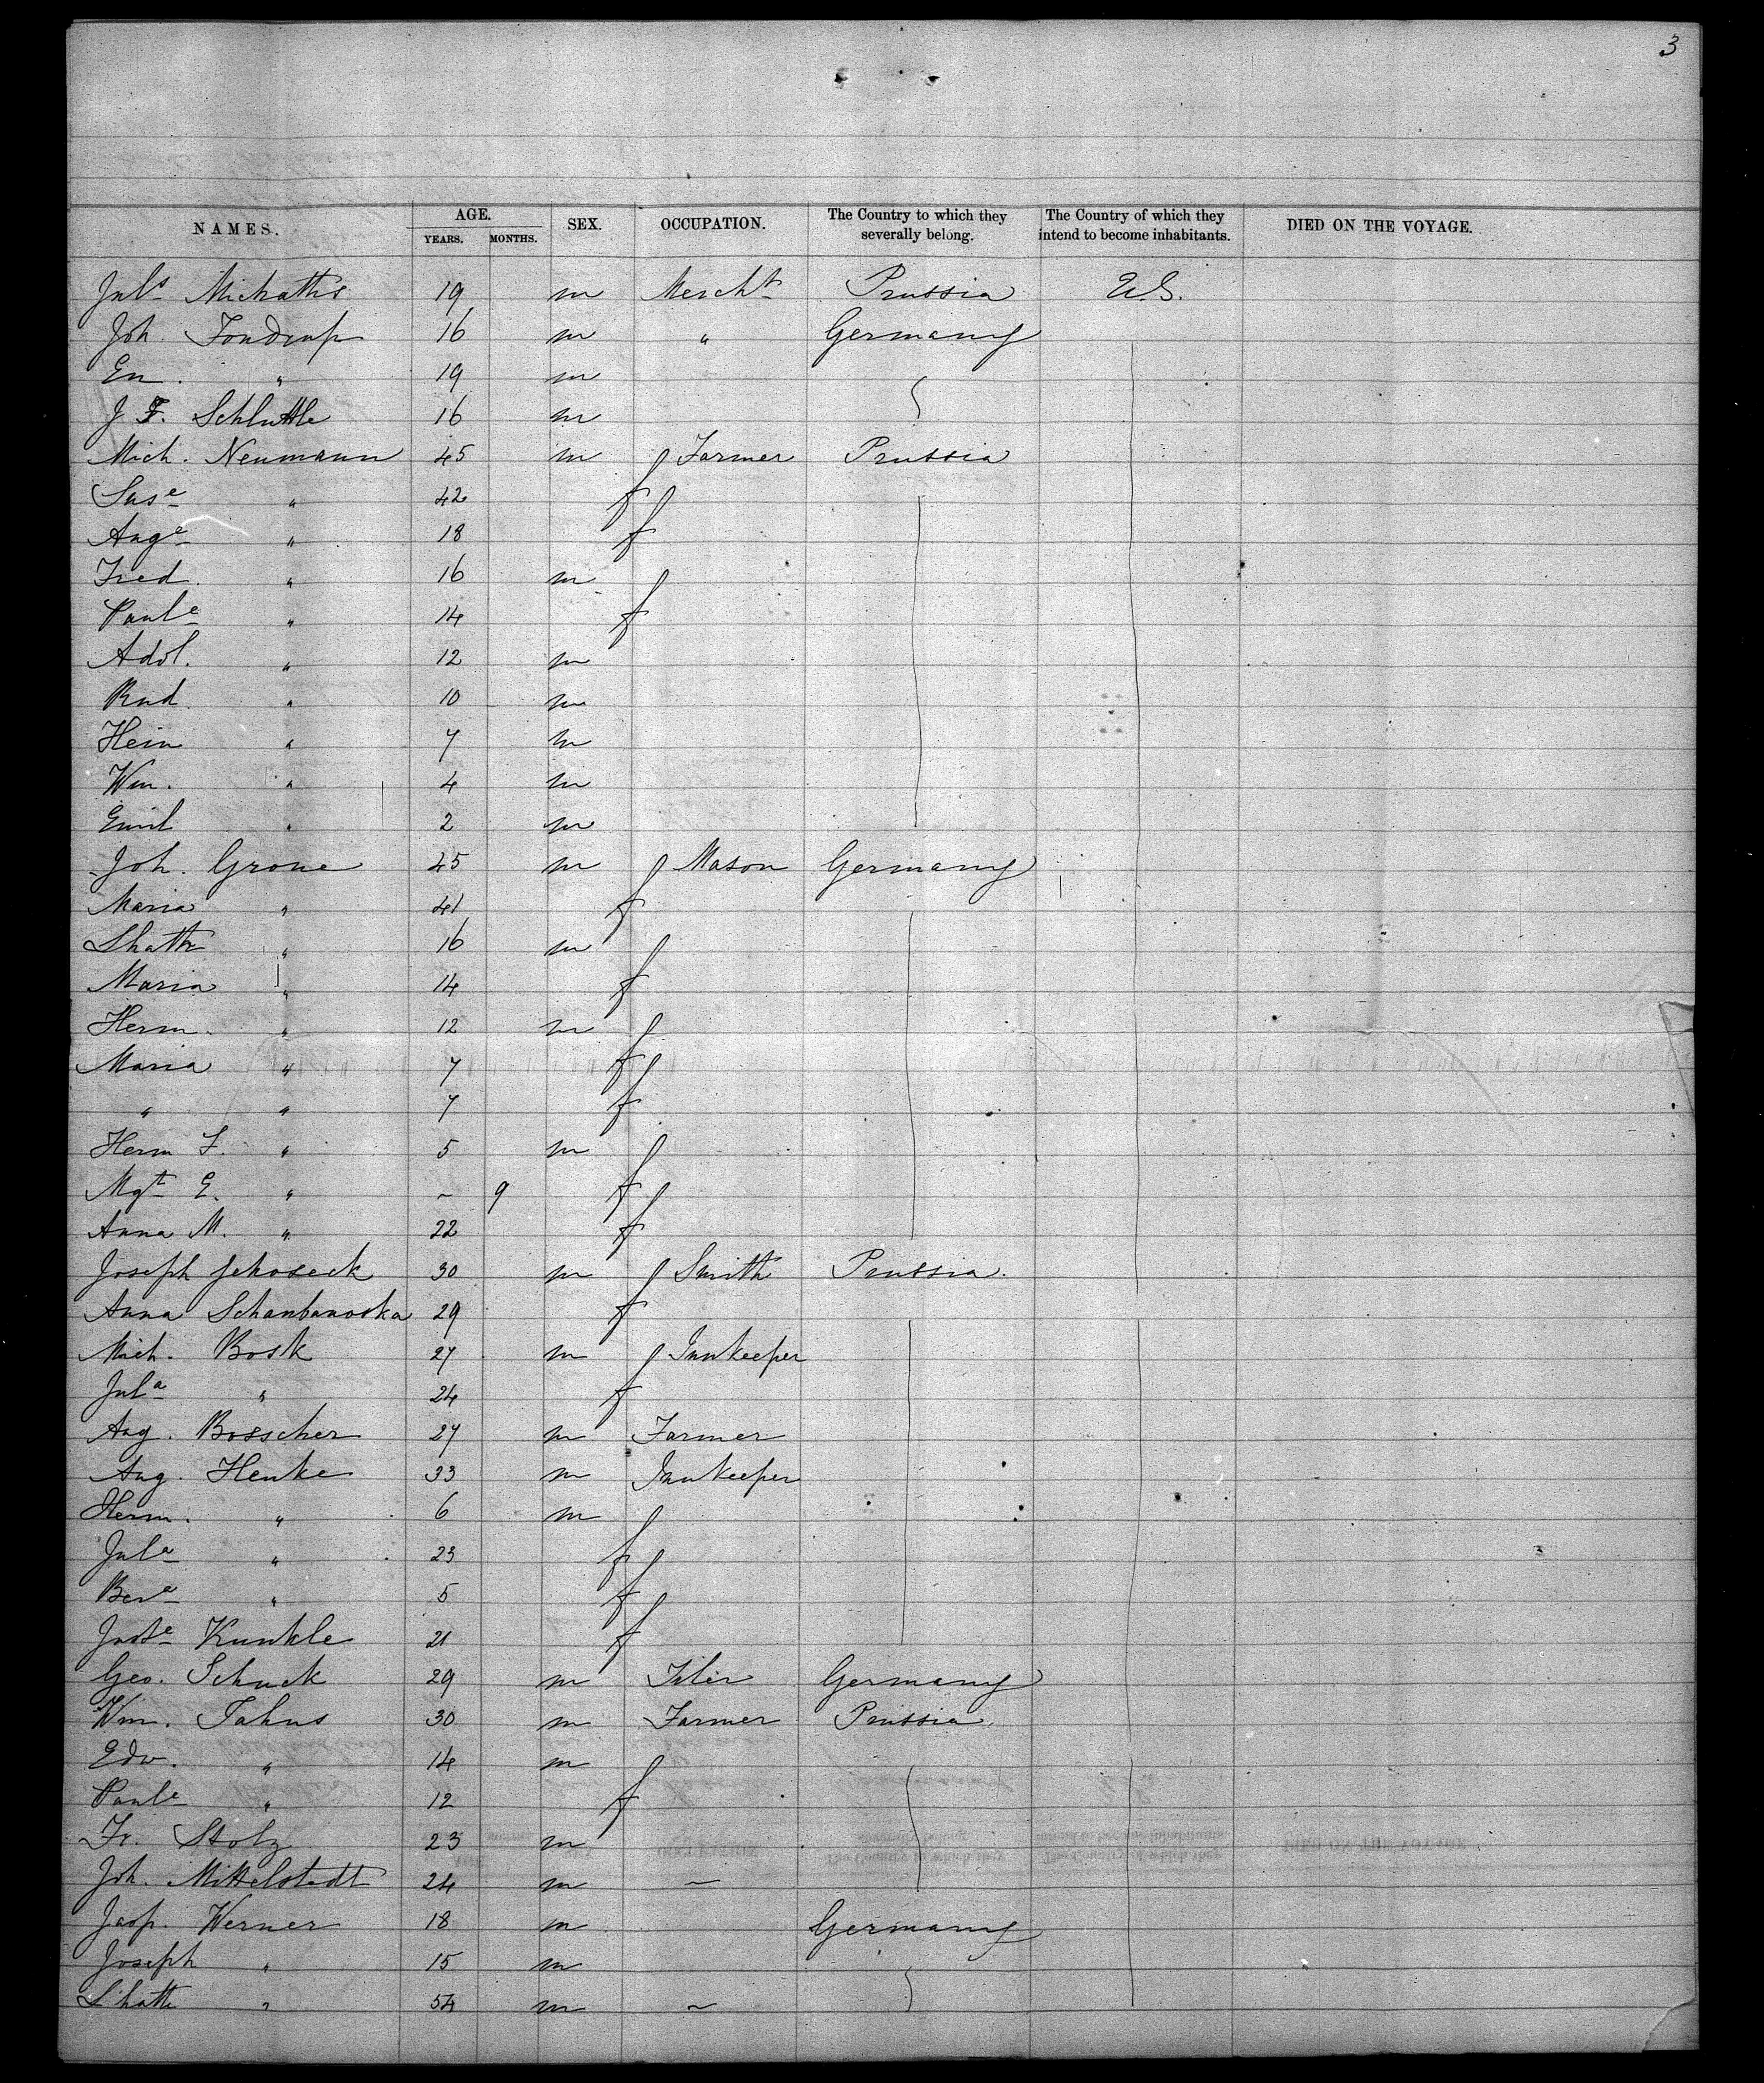 3
NAMES. AGE. YEARS. MONTHS. SEX. OCCUPATION. The Country to which they severally belong. The Country of which they intend to become inhabitants. DIED ON THE VOYAGE.
Juls Michathis 19 m Mercht Prussia U.S.
Joh. Fondrup 16 m " Germany
En. " 19 m
J F. Schluttle 16 m
Mich. Neumann 45 m Farmer Prussia
Suse " 42 f
Auge " 18 f
Fred. " 16 m
Paule " 14 f
Adol. " 12 m
Rud. " 10 m
Hein " 7 m
Wm. " 4 m
Emil " 2 m
Joh. Grone 45 m Mason Germany
Maria " 41 f
" 16 m
Maria " 14 f
Herm. " 12 m
Maria " 7 f
" " 7 f
Herm F. " 5 m
Mgt E. " ~ 9 f
Anna M. " 22 f
Joseph Jehoseck 30 m Smith Prussia.
Anna Schanbanoska 29 f
Mich. Bosk 27 m Innkeeper
Jula " 24 f
Aug. Bosscher 27 m Farmer
Aug. Henke 33 m Innkeeper
Herm. " 6 m
Jula " 23 f
Bera " 5 f
Juste Kunkle 21 f
Geo. Schuck 29 m Tiler Germany
Wm. Jahns 30 m Farmer Prussia
Edw. " 14 m
Paule " 12 f
Fr. Stolz 23 m
Joh. Mittelstedt 24 m ~
Jasp. Werner 18 m Germany
Joseph " 15 m
" 54 m ~